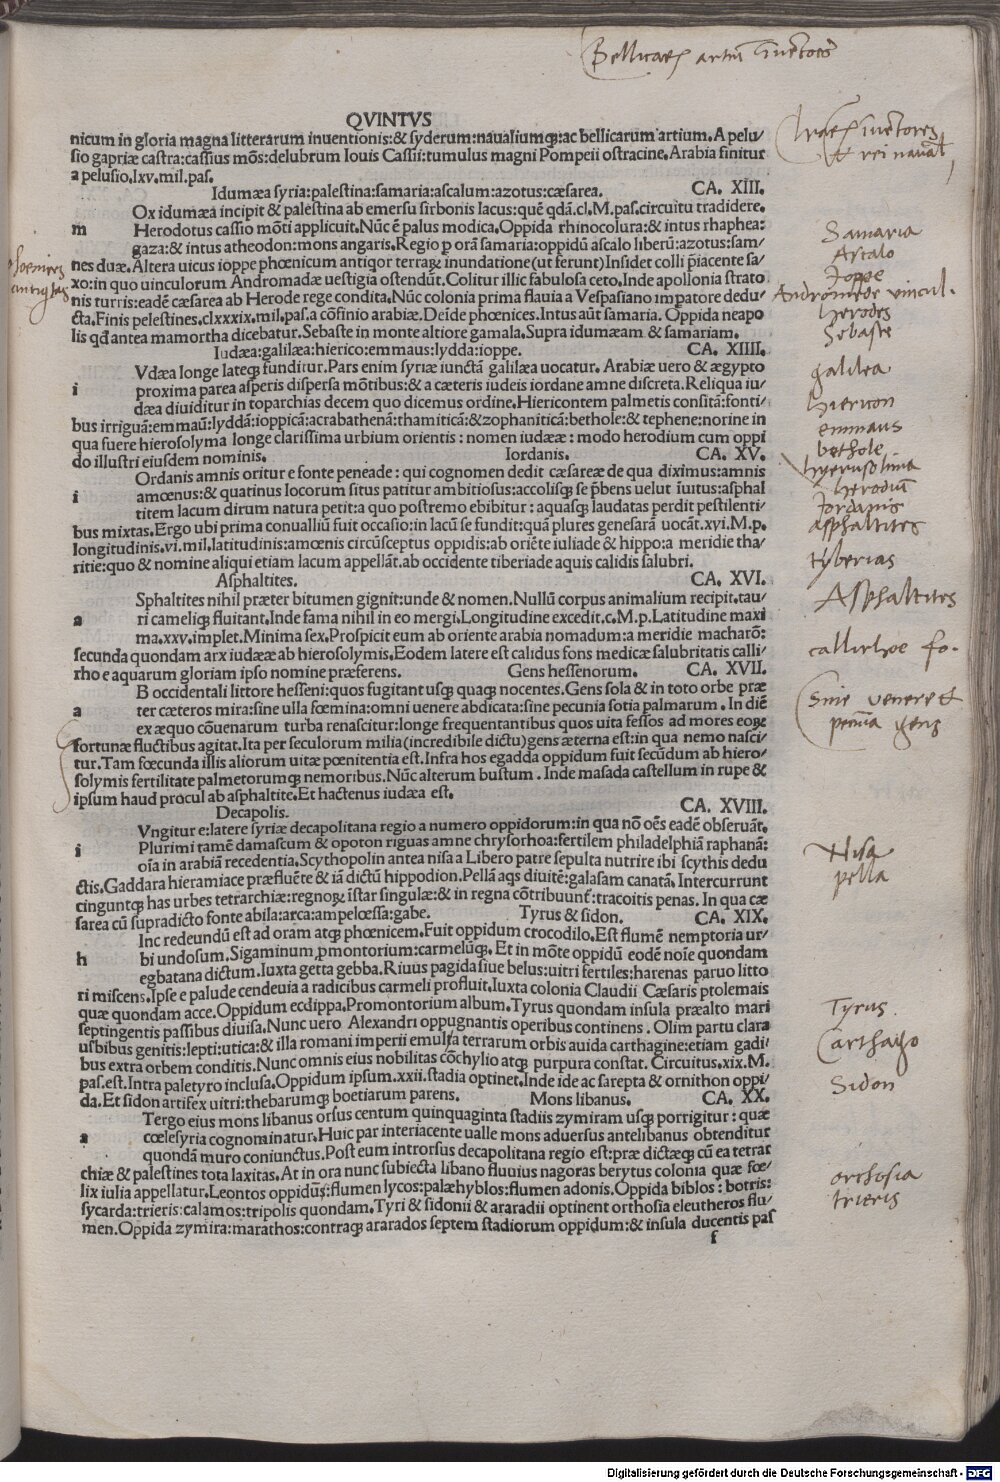 Bellicaꝝ artiū inuētores
QVINTVS
nicum in gloria magna litterarum inuentionis:& syderum:naualiumq;:ac bellicarum artium.A pelu/
sio gapriæ castra:cassius mōs:delubrum Iouis Cassii:tumulus magni Pompeii ostracine.Arabia finitur
a pelusio.lxv.mil.pas.
Idumæa syria:palestina:samaria:ascalum:azotus:cæsarea. CA. XIII.
Ox idumæa incipit & palestina ab emersu sirbonis lacus:quē qdā.cl.M.pas.circuitu tradidere.
m Herodotus cassio mōti applicuit.Nūc ē palus modica.Oppida rhinocolura:& intus rhaphea:
gaza:& intus atheodon:mons angaris.Regio p orā samaria:oppidū ascalo liberū:azotus:iam/
nes duæ.Altera uicus ioppe phœnicum antiqor terraꝝ inundatione(ut ferunt)Insidet colli p̄iacente sa/
xo:in quo uinculorum Andromadæ uestigia ostendūt.Colitur illic fabulosa ceto.Inde apollonia strato
nis turris:eadē cæsarea ab Herode rege condita.Nūc colonia prima flauia a Vespasiano impatore dedu/
cta.Finis pelestines.clxxxix.mil.pas.a cōfinio arabiæ.Deīde phœnices.Intus aūt samaria. Oppida neapo
lis qd antea mamortha dicebatur.Sebaste in monte altiore gamala.Supra idumæam & samariam.
Iudæa:galilæa:hierico:emmaus:lydda:ioppe. CA. XIIII.
Vdæa longe lateq; funditur.Pars enim syriæ iunctā galilæa uocatur. Arabiæ uero & ægypto
i proxima parea asperis dispersa mōtibus:& a cæteris iudeis iordane amne discreta.Reliqua iu/
dæa diuiditur in toparchias decem quo dicemus ordine.Hiericontem palmetis consitā:fonti/
bus irriguā:emmaū:lyddā:ioppicā:acrabathenā:thamiticā:& zophaniticā:bethole:& tephene:norine in
qua fuere hierosolyma longe clarissima urbium orientis : nomen iudææ : modo herodium cum oppi
do illustri eiusdem nominis. Iordanis. CA. XV.
Ordanis amnis oritur e fonte peneade : qui cognomen dedit cæsareæ de qua diximus:amnis
i amœnus:& quatinus locorum situs patitur ambitiosus:accolisq; se p̄bens uelut īuitus:asphal
titem lacum dirum natura petit:a quo postremo ebibitur : aquasq; laudatas perdit pestilenti/
bus mixtas.Ergo ubi prima conualliū fuit occasio:in lacū se fundit:quā plures genesarā uocāt.xvi.M.p.
longitudinis.vi.mil.latitudinis:amœnis circūsceptus oppidis:ab oriēte iuliade & hippo:a meridie tha/
ritie:quo & nomine aliqui etiam lacum appellāt.ab occidente tiberiade aquis calidis salubri.
Asphaltites. CA. XVI.
Sphaltites nihil præter bitumen gignit:unde & nomen.Nullū corpus animalium recipit.tau/
a ri cameliq; fluitant.Inde fama nihil in eo mergi.Longitudine excedit.c.M.p.Latitudine maxi
ma.xxv.implet.Minima sex.Prospicit eum ab oriente arabia nomadum:a meridie macharō:
secunda quondam arx iudææ ab hierosolymis.Eodem latere est calidus fons medicæ salubritatis calli/
rho e aquarum gloriam ipso nomine præferens. Gens hessenorum. CA. XVII.
B occidentali littore hesseni:quos fugitant usq; quaq; nocentes.Gens sola & in toto orbe præ
a ter cæteros mira:sine ulla fœmina:omni uenere abdicata:sine pecunia sotia palmarum . In diē
ex æquo cōuenarum turba renascitur:longe frequentantibus quos uita fessos ad mores eoꝝ
fortunæ fluctibus agitat.Ita per seculorum milia(incredibile dictu)gens æterna est:in qua nemo nasci/
tur.Tam fœcunda illis aliorum uitæ pœnitentia est.Infra hos egadda oppidum fuit secūdum ab hiero/
solymis fertilitate palmetorumq; nemoribus.Nūc alterum bustum . Inde masada castellum in rupe &
ipsum haud procul ab asphaltite.Et hactenus iudæa est.
Decapolis. CA. XVIII.
Vngitur e:latere syriæ decapolitana regio a numero oppidorum:in qua nō oēs eadē obseruāt.
i Plurimi tamē damascum & opoton riguas amne chrysorhoa:fertilem philadelphiā raphanā:
oīa in arabiā recedentia.Scythopolin antea nisa a Libero patre sepulta nutrire ibi scythis dedu
ctis.Gaddara hieramiace præfluēte & iā dictū hippodion.Pellā aqs diuitē:galasam canatā. Intercurrunt
cinguntq; has urbes tetrarchiæ:regnoꝝ īstar singulæ:& in regna cōtribuunt:tracoitis penas. In qua cæ
sarea cū supradicto fonte abila:arca:ampelœssa:gabe. Tyrus & sidon. CA. XIX.
Inc redeundū est ad oram atq; phœnicem.Fuit oppidum crocodilo.Est flumē nemptoria ur/
h bi undosum.Sigaminum,pmontorium:carmelūq;. Et in mōte oppidū eodē noīe quondam
egbatana dictum.Iuxta getta gebba.Riuus pagida siue belus:uitri fertiles:harenas paruo litto
ri miscens.Ipse e palude cendeuia a radicibus carmeli profluit.Iuxta colonia Claudii Cæsaris ptolemais
quæ quondam acce.Oppidum ecdippa.Promontorium album.Tyrus quondam insula præalto mari
septingentis passibus diuisa.Nunc uero Alexandri oppugnantis operibus continens . Olim partu clara
usbibus genitis:lepti:utica:& illa romani imperii emulsa terrarum orbis auida carthagine:etiam gadi/
bus extra orbem conditis.Nunc omnis eius nobilitas cōchylio atq; purpura constat. Circuitus.xix.M.
pas.est.Intra paletyro inclusa.Oppidum ipsum.xxii.stadia optinet.Inde ide ac sarepta & ornithon oppi/
da.Et sidon artifex uitri:thebarumq; boetiarum parens. Mons libanus. CA. XX.
Tergo eius mons libanus orsus centum quinquaginta stadiis zymiram usq; porrigitur : quæ
a cœlesyria cognominatur.Huic par interiacente ualle mons aduersus antelibanus obtenditur
quondā muro coniunctus.Post eum introrsus decapolitana regio est:præ dictæq; cū ea tetrar
chiæ & palestines tota laxitas. At in ora nunc subiecta libano fluuius nagoras berytus colonia quæ fœ/
lix iulia appellatur.Leontos oppidūs:flumen lycos:palæhyblos:flumen adonis.Oppida biblos : botris:
sycarda:trieris:calamos:tripolis quondam. Tyri & sidonii & araradii optinent orthosia eleutheros flu/
men.Oppida zymira:marathos:contraq; ararados septem stadiorum oppidum:& insula ducentis pas
f
phoenices
antiqitas
lraꝝ inuētores
& rei naual
Samaria
Ascalo
Joppe
Andromede vincul.
herodes
Sebaste
galilea
hiericon
emmaus
bethole
hyerusolima
herodiū
Jordanis
asphaltites
tyberias
Asphaltites
callirhoe fo.
Sine venere &
pecunia gens
Nisa
pella
Tyrus.
Carthago
Sidon
orthosia
trieris
Digitalisierung gefördert durch die Deutsche Forschungsgemeinschaft - DFG